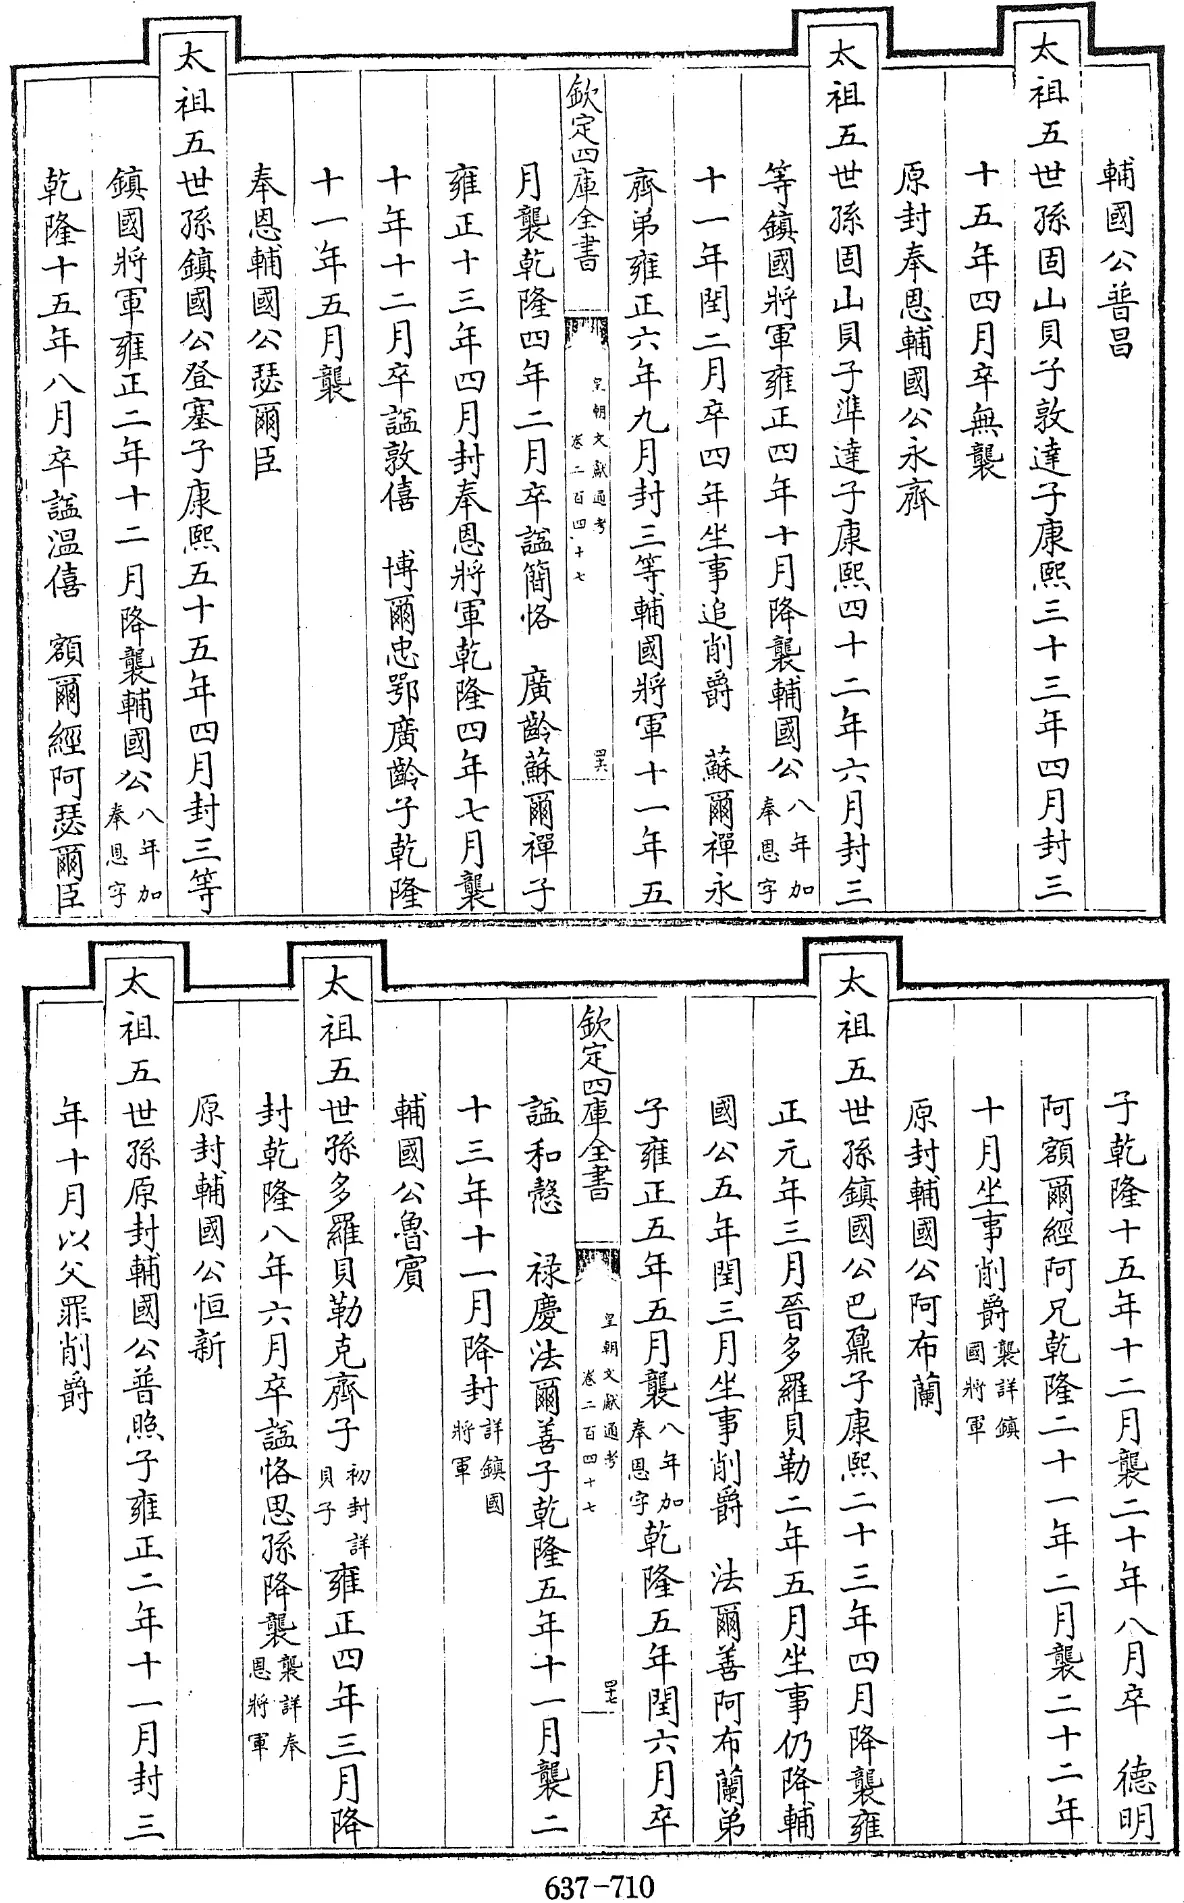 輔國公普昌
太祖五世孫固山貝子敦達子康熙三十三年四月封三
十五年四月卒無襲
原封奉恩輔國公永齊
太祖五世孫固山貝子準達子康熙四十二年六月封三
等鎮國將軍雍正四年十月降襲輔國公八年加奉恩字
十一年閏二月卒四年坐事追削爵　蘇爾禪永
齊弟雍正六年九月封三等輔國將軍十一年五
欽定四庫全書
皇朝文獻通考
卷二百四十七
四六
月襲乾隆四年二月卒諡簡恪　廣齡蘇爾禪子
雍正十三年四月封奉恩將軍乾隆四年七月襲
十年十二月卒諡敦僖　博爾忠鄂廣齡子乾隆
十一年五月襲
奉恩輔國公瑟爾臣
太祖五世孫鎮國公登塞子康熙五十五年四月封三等
鎮國將軍雍正二年十二月降襲輔國公八年加奉恩字
乾隆十五年八月卒諡溫僖　額爾經阿瑟爾臣
子乾隆十五年十二月襲二十年八月卒　德明
阿額爾經阿兄乾隆二十一年二月襲二十二年
十月坐事削爵襲詳鎮國將軍
原封輔國公阿布蘭
太祖五世孫鎮國公巴鼐子康熙二十三年四月降襲雍
正元年三月晉多羅貝勒二年五月坐事仍降輔
國公五年閏三月坐事削爵　法爾善阿布蘭弟
子雍正五年五月襲八年加奉恩字乾隆五年閏六月卒
欽定四庫全書
皇朝文獻通考
卷二百四十七
四七
諡和慤　祿慶法爾善子乾隆五年十一月襲二
十三年十一月降封詳鎮國將軍
輔國公魯賓
太祖五世孫多羅貝勒克齊子初封詳貝子雍正四年三月降
封乾隆八年六月卒諡恪思孫降襲襲詳奉恩將軍
原封輔國公恒新
太祖五世孫原封輔國公普照子雍正二年十一月封三
年十月以父罪削爵
637-710